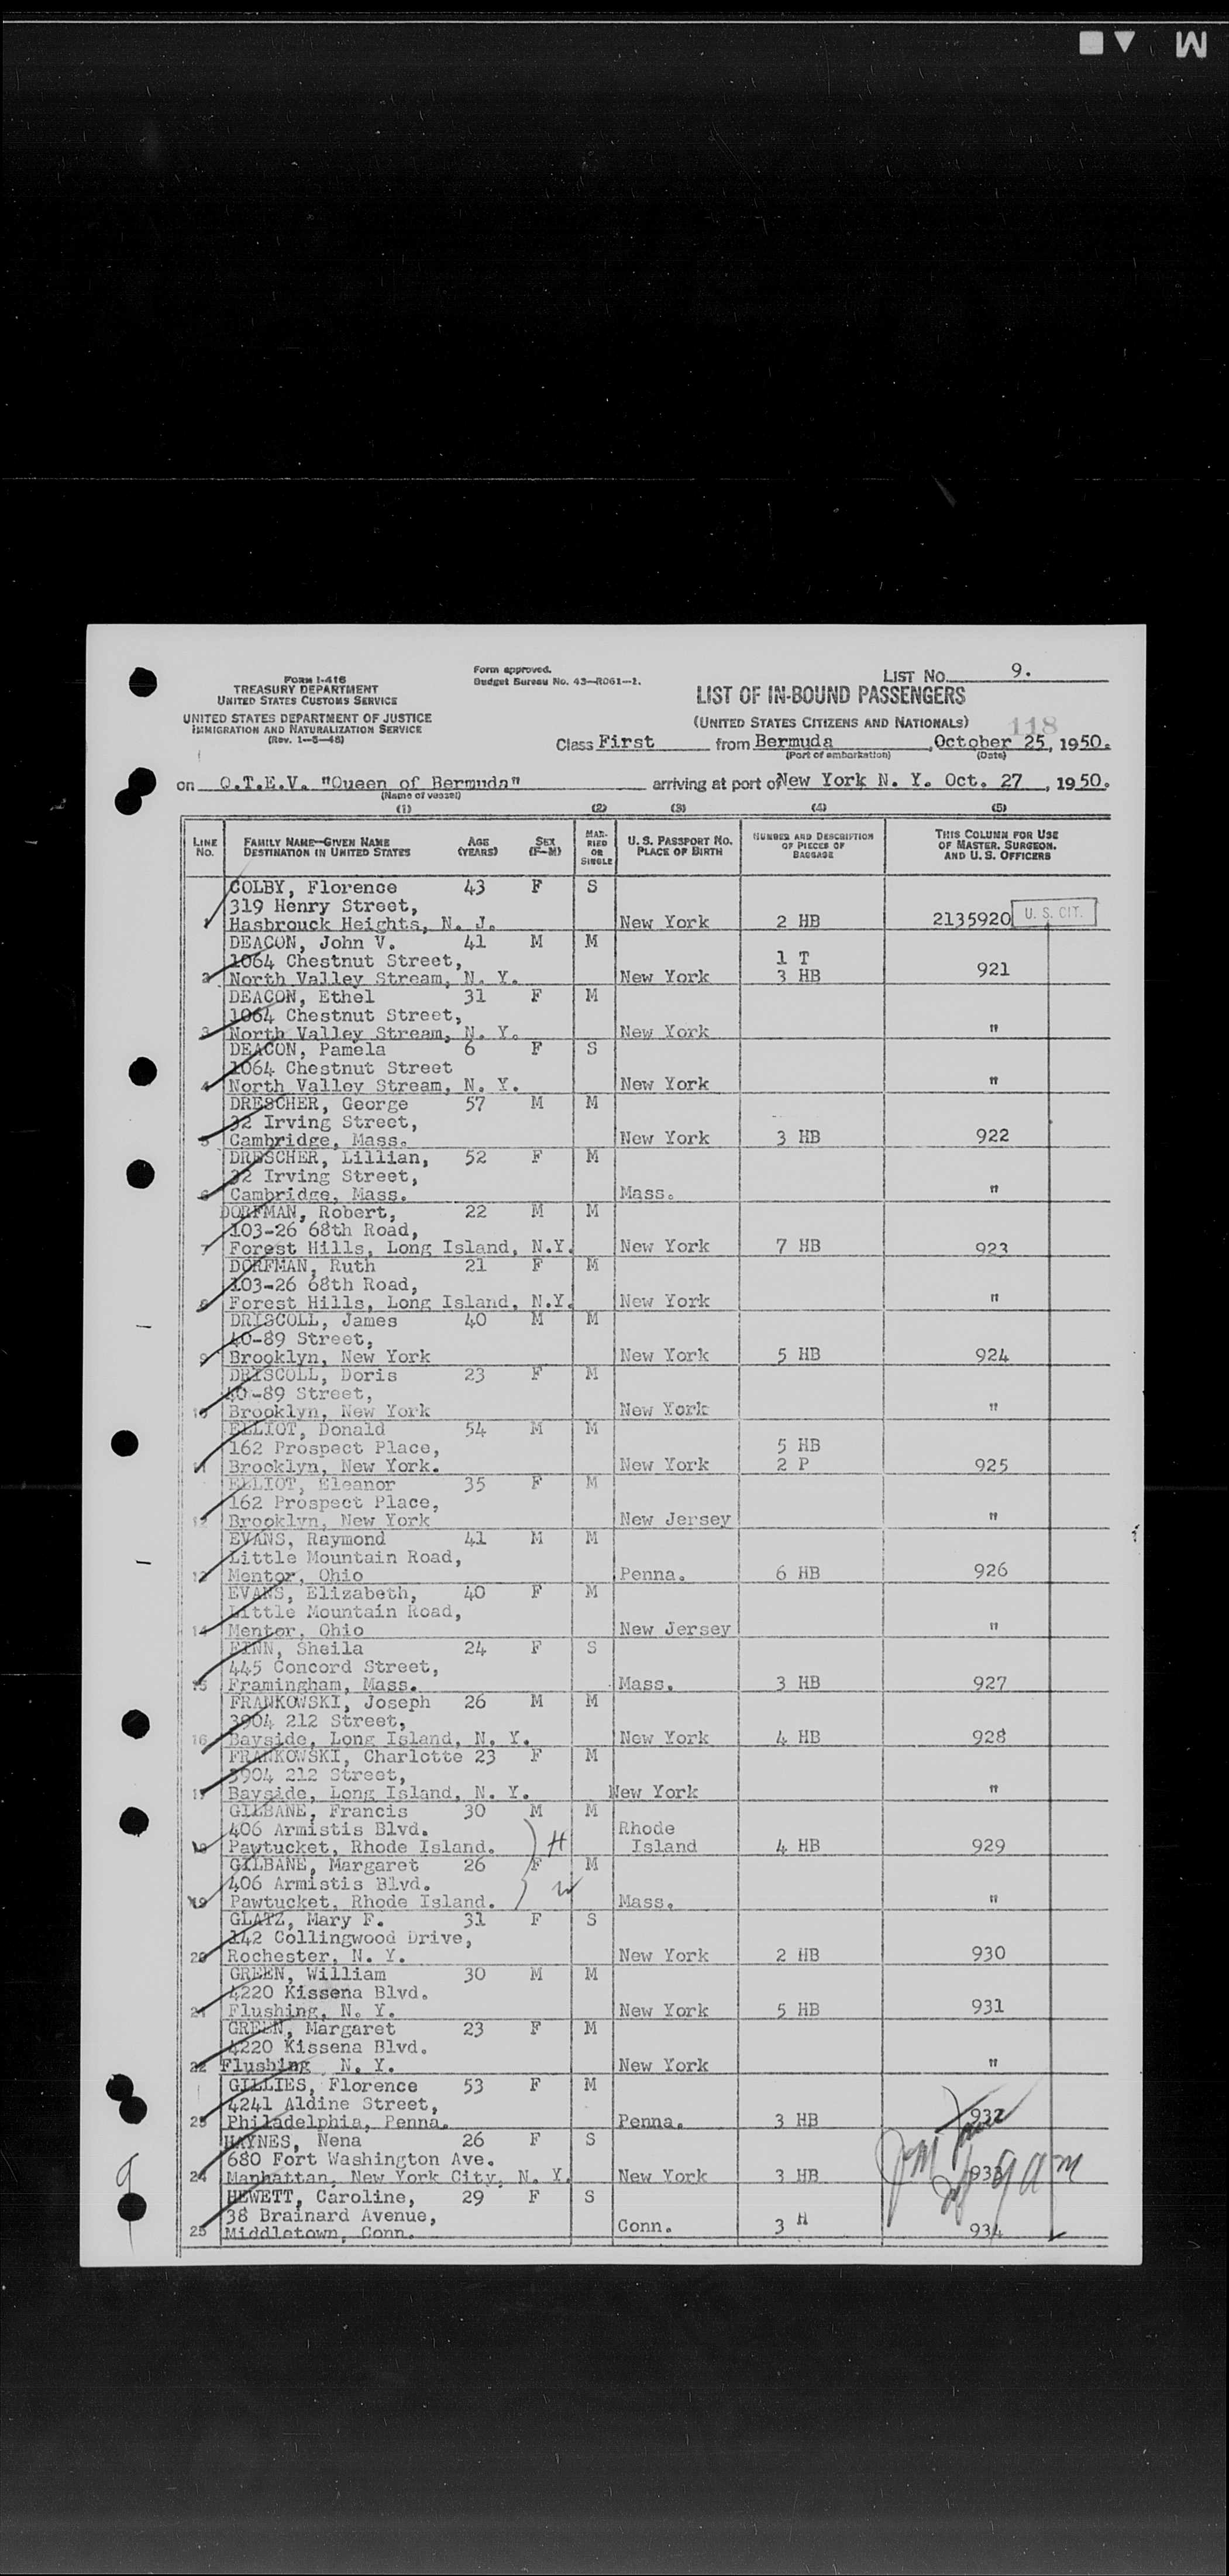 M
Form I-416
TREASURY DEPARTMENT
UNITED STATES CUSTOMS SERVICE
UNITED STATES DEPARTMENT OF JUSTICE
IMMIGRATION AND NATURALIZATION SERVICE
(Rev. 1-5-48)
Form approved.
Budget Bureau No. 43-R061-1.
LIST No. 9.
LIST OF IN-BOUND PASSENGERS
(UNITED STATES CITIZENS AND NATIONALS)
118
Class First from Bermuda, October 25, 1950.
(Port of embarkation) (Date)
on Q.T.E.V. "Queen of Bermuda" arriving at port of New York N. Y. Oct. 27, 1950.
(Name of vessel)
(1) (2) (3) (4) (5)
LINE No. FAMILY NAME—GIVEN NAME DESTINATION IN UNITED STATES AGE (YEARS) SEX (F-M) MARRIED OR SINGLE U. S. PASSPORT NO. PLACE OF BIRTH NUMBER AND DESCRIPTION OF PIECES OF BAGGAGE THIS COLUMN FOR USE OF MASTER, SURGEON, AND U. S. OFFICERS
COLBY, Florence 43 F S
319 Henry Street,
1 Hasbrouck Heights, N. J. New York 2 HB 2135920 U. S. CIT.
DEACON, John V. 41 M M
1064 Chestnut Street, 1 T
2 North Valley Stream, N. Y. New York 3 HB 921
DEACON, Ethel 31 F M
1064 Chestnut Street,
3 North Valley Stream, N. Y. New York "
DEACON, Pamela 6 F S
1064 Chestnut Street
4 North Valley Stream, N. Y. New York "
DRESCHER, George 57 M M
32 Irving Street,
5 Cambridge, Mass. New York 3 HB 922
DRESCHER, Lillian, 52 F M
32 Irving Street,
6 Cambridge, Mass. Mass. "
DORFMAN, Robert, 22 M M
103-26 68th Road,
7 Forest Hills, Long Island, N.Y. New York 7 HB 923
DORFMAN, Ruth 21 F M
103-26 68th Road,
8 Forest Hills, Long Island, N.Y. New York "
DRISCOLL, James 40 M M
40-89 Street,
9 Brooklyn, New York New York 5 HB 924
DRISCOLL, Doris 23 F M
40-89 Street,
10 Brooklyn, New York New York "
ELLIOT, Donald 54 M M
162 Prospect Place, 5 HB
11 Brooklyn, New York. New York 2 P 925
ELLIOT, Eleanor 35 F M
162 Prospect Place,
12 Brooklyn, New York New Jersey "
EVANS, Raymond 41 M M
Little Mountain Road,
13 Mentor, Ohio Penna. 6 HB 926
EVANS, Elizabeth, 40 F M
Little Mountain Road,
14 Mentor, Ohio New Jersey "
FINN, Sheila 24 F S
445 Concord Street,
15 Framingham, Mass. Mass. 3 HB 927
FRANKOWSKI, Joseph 26 M M
3904 212 Street,
16 Bayside, Long Island, N. Y. New York 4 HB 928
FRANKOWSKI, Charlotte 23 F M
3904 212 Street,
17 Bayside, Long Island, N. Y. New York "
GILBANE, Francis 30 M M
406 Armistis Blvd. Rhode
18 Pawtucket, Rhode Island. H Island 4 HB 929
GILBANE, Margaret 26 F M
406 Armistis Blvd.
19 Pawtucket, Rhode Island. W Mass. "
GLATZ, Mary F. 31 F S
142 Collingwood Drive,
20 Rochester, N. Y. New York 2 HB 930
GREEN, William 30 M M
4220 Kissena Blvd.
21 Flushing, N. Y. New York 5 HB 931
GREEN, Margaret 23 F M
4220 Kissena Blvd.
22 Flushing N. Y. New York "
GILLIES, Florence 53 F M
4241 Aldine Street,
23 Philadelphia, Penna. Penna. 3 HB 932
HAYNES, Nena 26 F S
680 Fort Washington Ave.
24 Manhattan, New York City, N. Y. New York 3 HB 933
HEWETT, Caroline, 29 F S
38 Brainard Avenue,
25 Middletown, Conn. Conn. 3 H 934
9